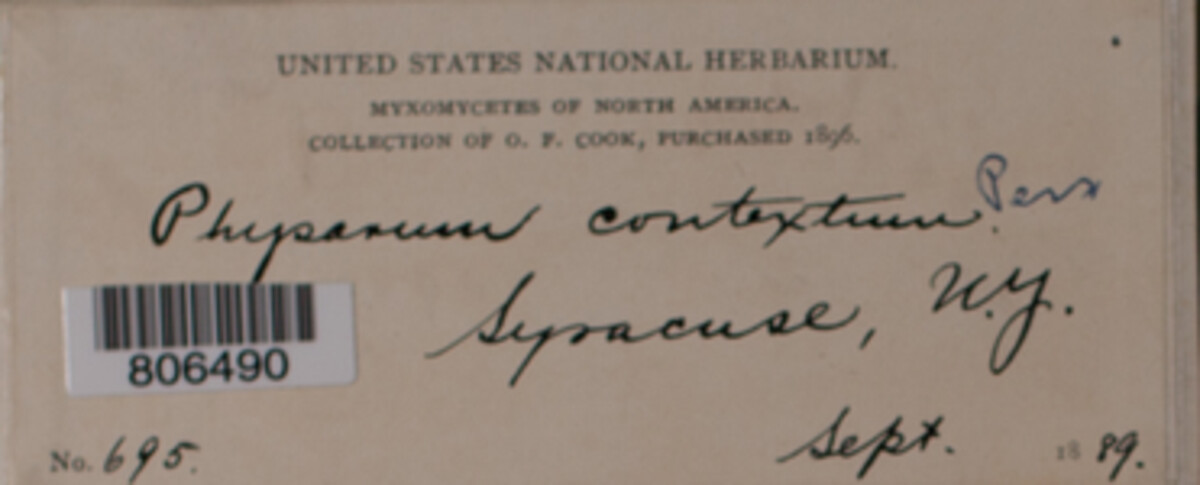 UNITED STATES NATIONAL HERBARIUM.
MYXOMYCETES OF NORTH AMERICA.
COLLECTION OF O. F. COOK, PURCHASED 1896.
Physarum contextum. Pers
Syracuse, N.Y.
806490
Sept.
No. 695. 1889.